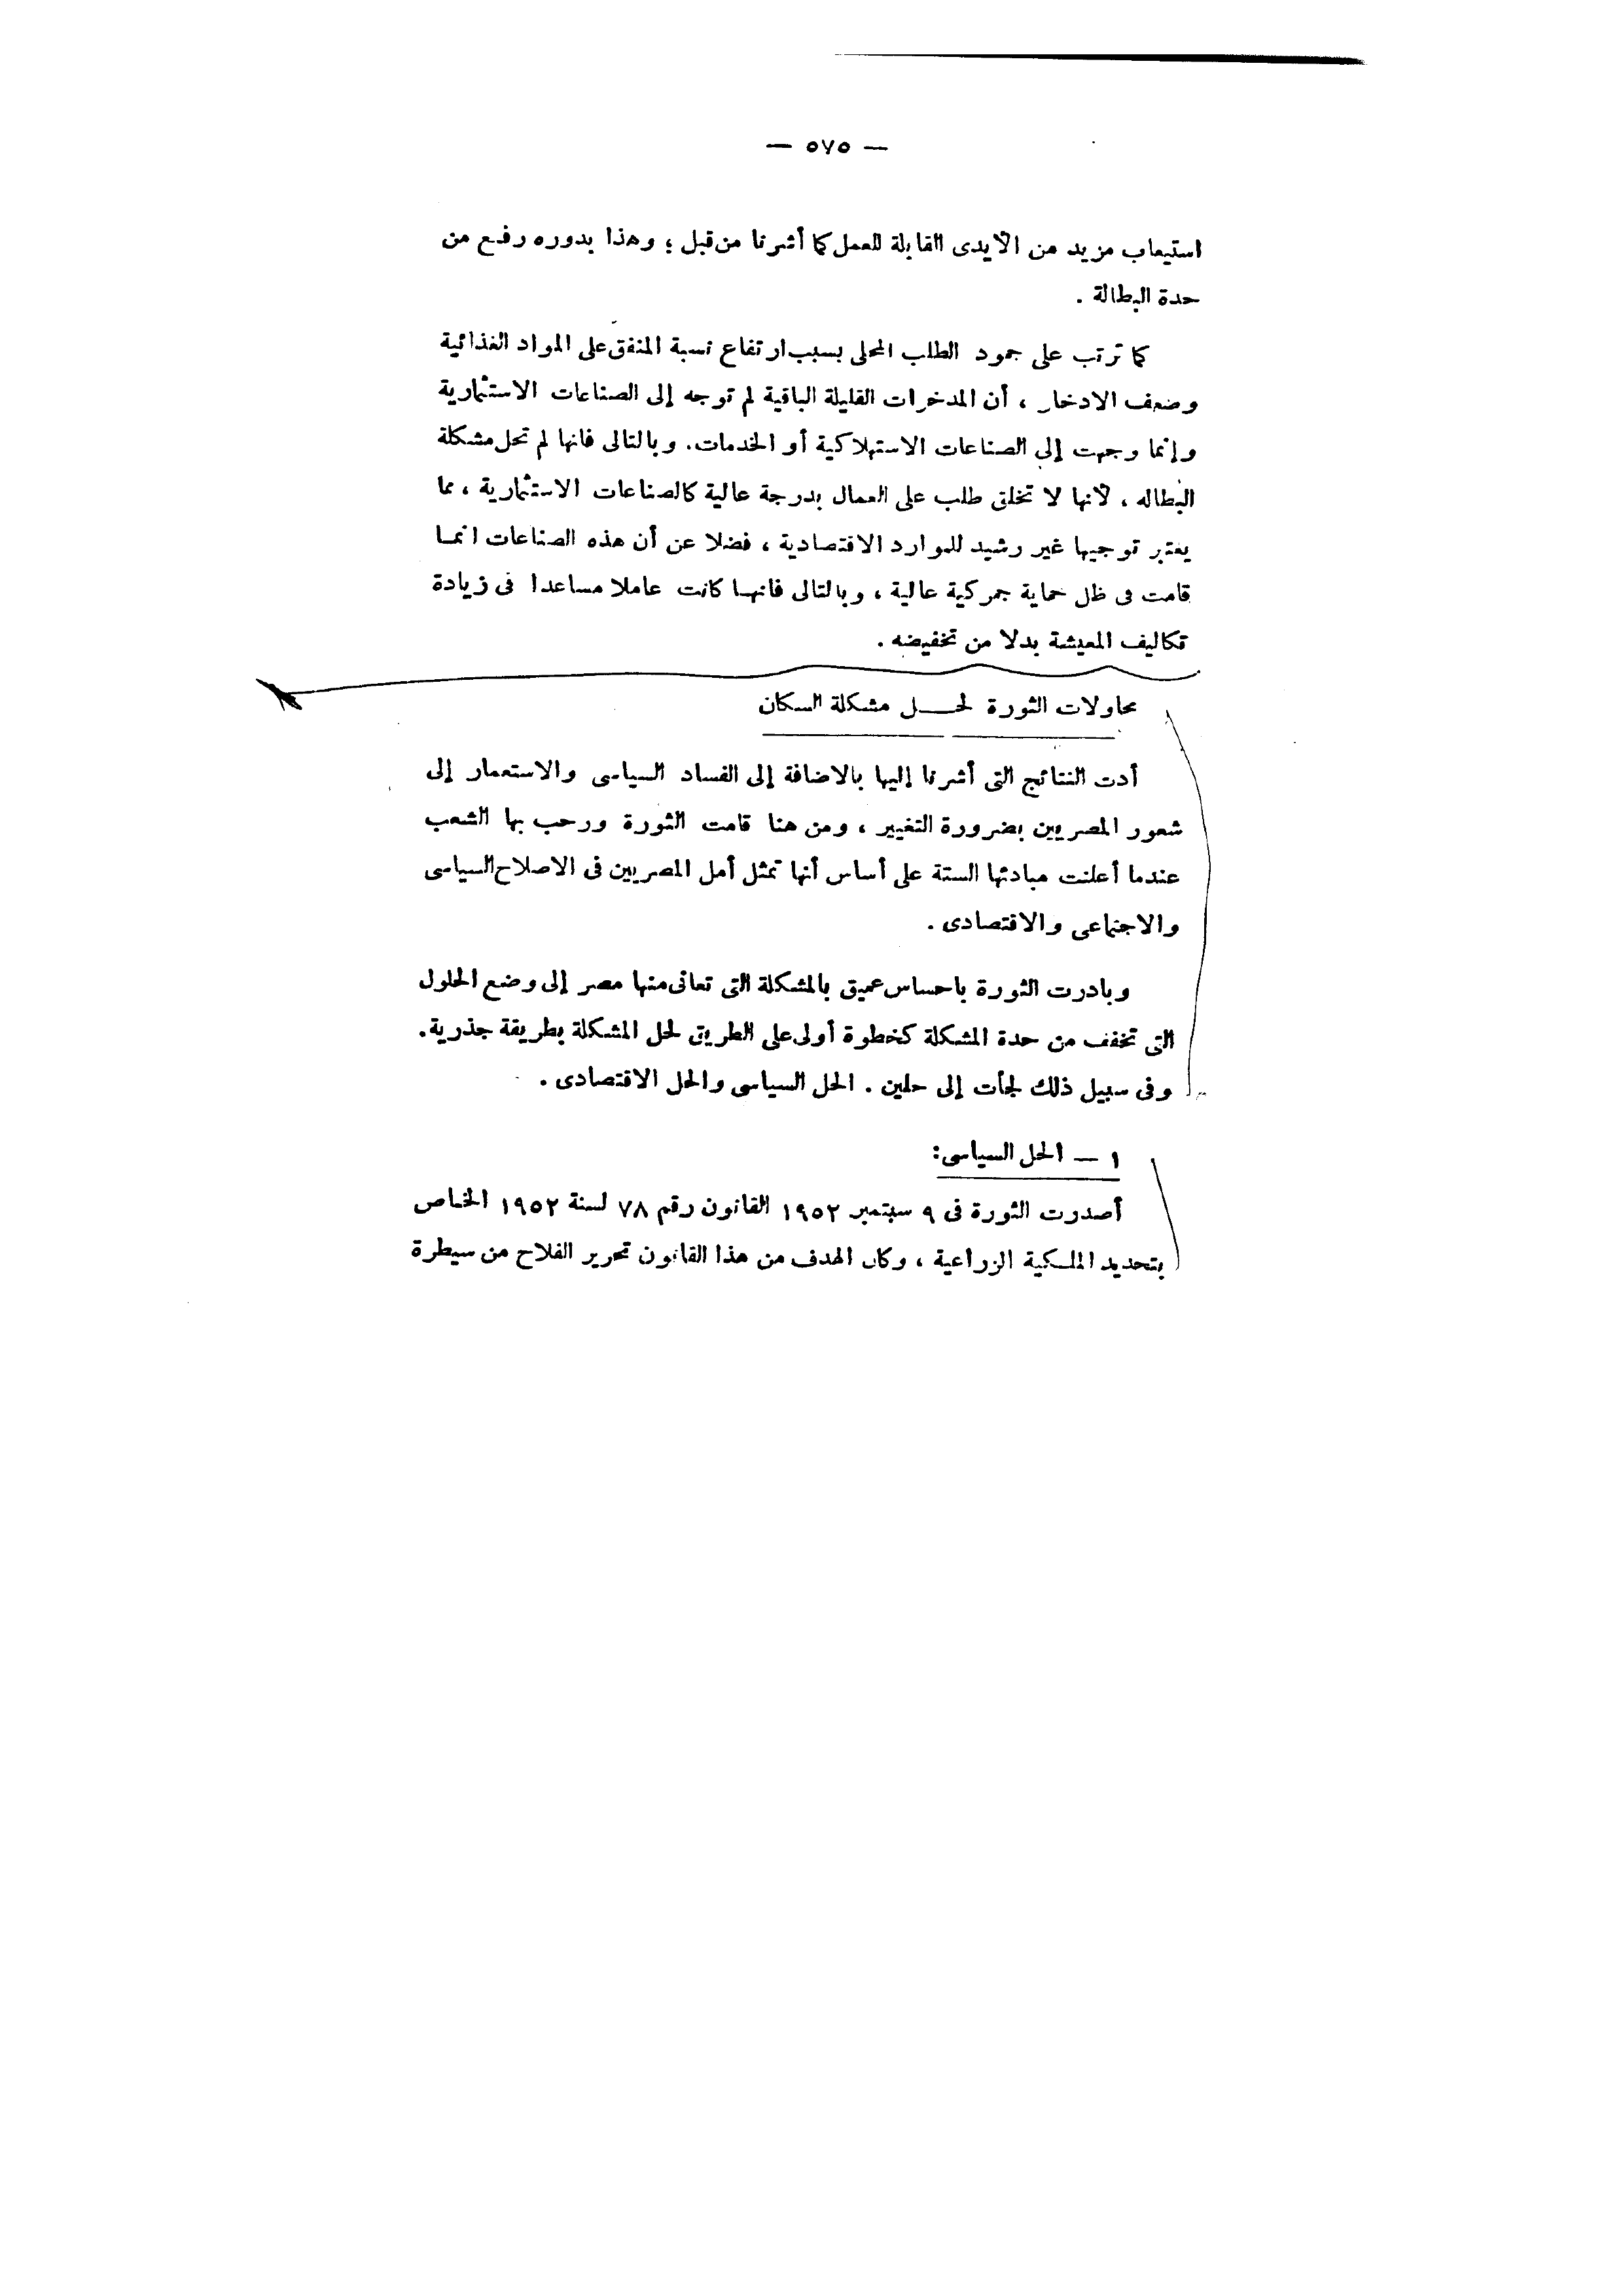 — ٥٧٥ —
استيعاب مزيد من الأيدى القابلة للعمل كما أشرنا من قبل ؛ وهذا بدوره رفع من
حدة البطالة .
كما ترتب على جمود الطلب المحلى بسبب ارتفاع نسبة المنفق على المواد الغذائية
وضعف الادخار ، أن المدخرات القليلة الباقية لم توجه إلى الصناعات الاستثمارية
وإنما وجهت إلى الصناعات الاستهلاكية أو الخدمات. وبالتالى فانها لم تحل مشكلة
البطاله ، لأنها لا تخلق طلب على العمال بدرجة عالية كالصناعات الاستثمارية ، مما
يعتبر توجيها غير رشيد للموارد الاقتصادية ، فضلا عن أن هذه الصناعات انما
قامت فى ظل حماية جمركية عالية ، وبالتالى فانها كانت عاملا مساعدا فى زيادة
تكاليف المعيشة بدلا من تخفيضه .
محاولات الثورة لحل مشكلة السكان
أدت النتائج التى أشرنا إليها بالاضافة إلى الفساد السياسى والاستعمار إلى
شعور المصريين بضرورة التغيير ، ومن هنا قامت الثورة ورحب بها الشعب
عندما أعلنت مبادئها الستة على أساس أنها تمثل أمل المصريين فى الاصلاح السياسى
والاجتماعى والاقتصادى .
وبادرت الثورة باحساس عميق بالمشكلة التى تعانى منها مصر إلى وضع الحلول
التى تخفف من حدة المشكلة كخطوة أولى على الطريق لحل المشكلة بطريقة جذرية.
وفى سبيل ذلك لجأت إلى حلين . الحل السياسى والحل الاقتصادى .
١ — الحل السياسى:
أصدرت الثورة فى ٩ سبتمبر ١٩٥٢ القانون رقم ٧٨ لسنة ١٩٥٢ الخاص
بتحديد الملكية الزراعية ، وكان الهدف من هذا القانون تحرير الفلاح من سيطرة